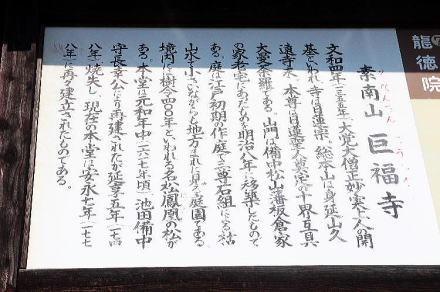 素南山 巨福寺
文和四年(一三五五年)大覚大僧正妙実上人の開
基といわれ寺は日蓮宗。総本山は身延山久
遠寺、本尊は日蓮聖人奠定の十界互具
大曼荼羅である。山門は備中松山藩板倉家
の家老宅にあったものを明治八年移築したもので
ある。庭は江戸初期の作庭で三尊石組による枯
山水で小さいながらも地方まれに見る庭園である。
境内には樹令四〇〇年といわれる名松鳳凰の松が
ある。本堂は元和年中(一六一七年頃)池田備中
守長幸公により再建されたが延享五年(一七四
八年)焼失し、現在の本堂は安永七年(一七七
八年)に再々建立されたものである。
龍徳院